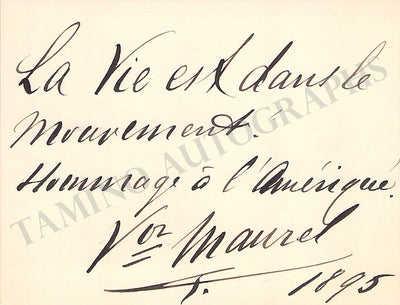 La Vie est dans le
mouvement.
Hommage à l'Amérique.
Vor Maurel
1895
TAMINO AUTOGRAPHS